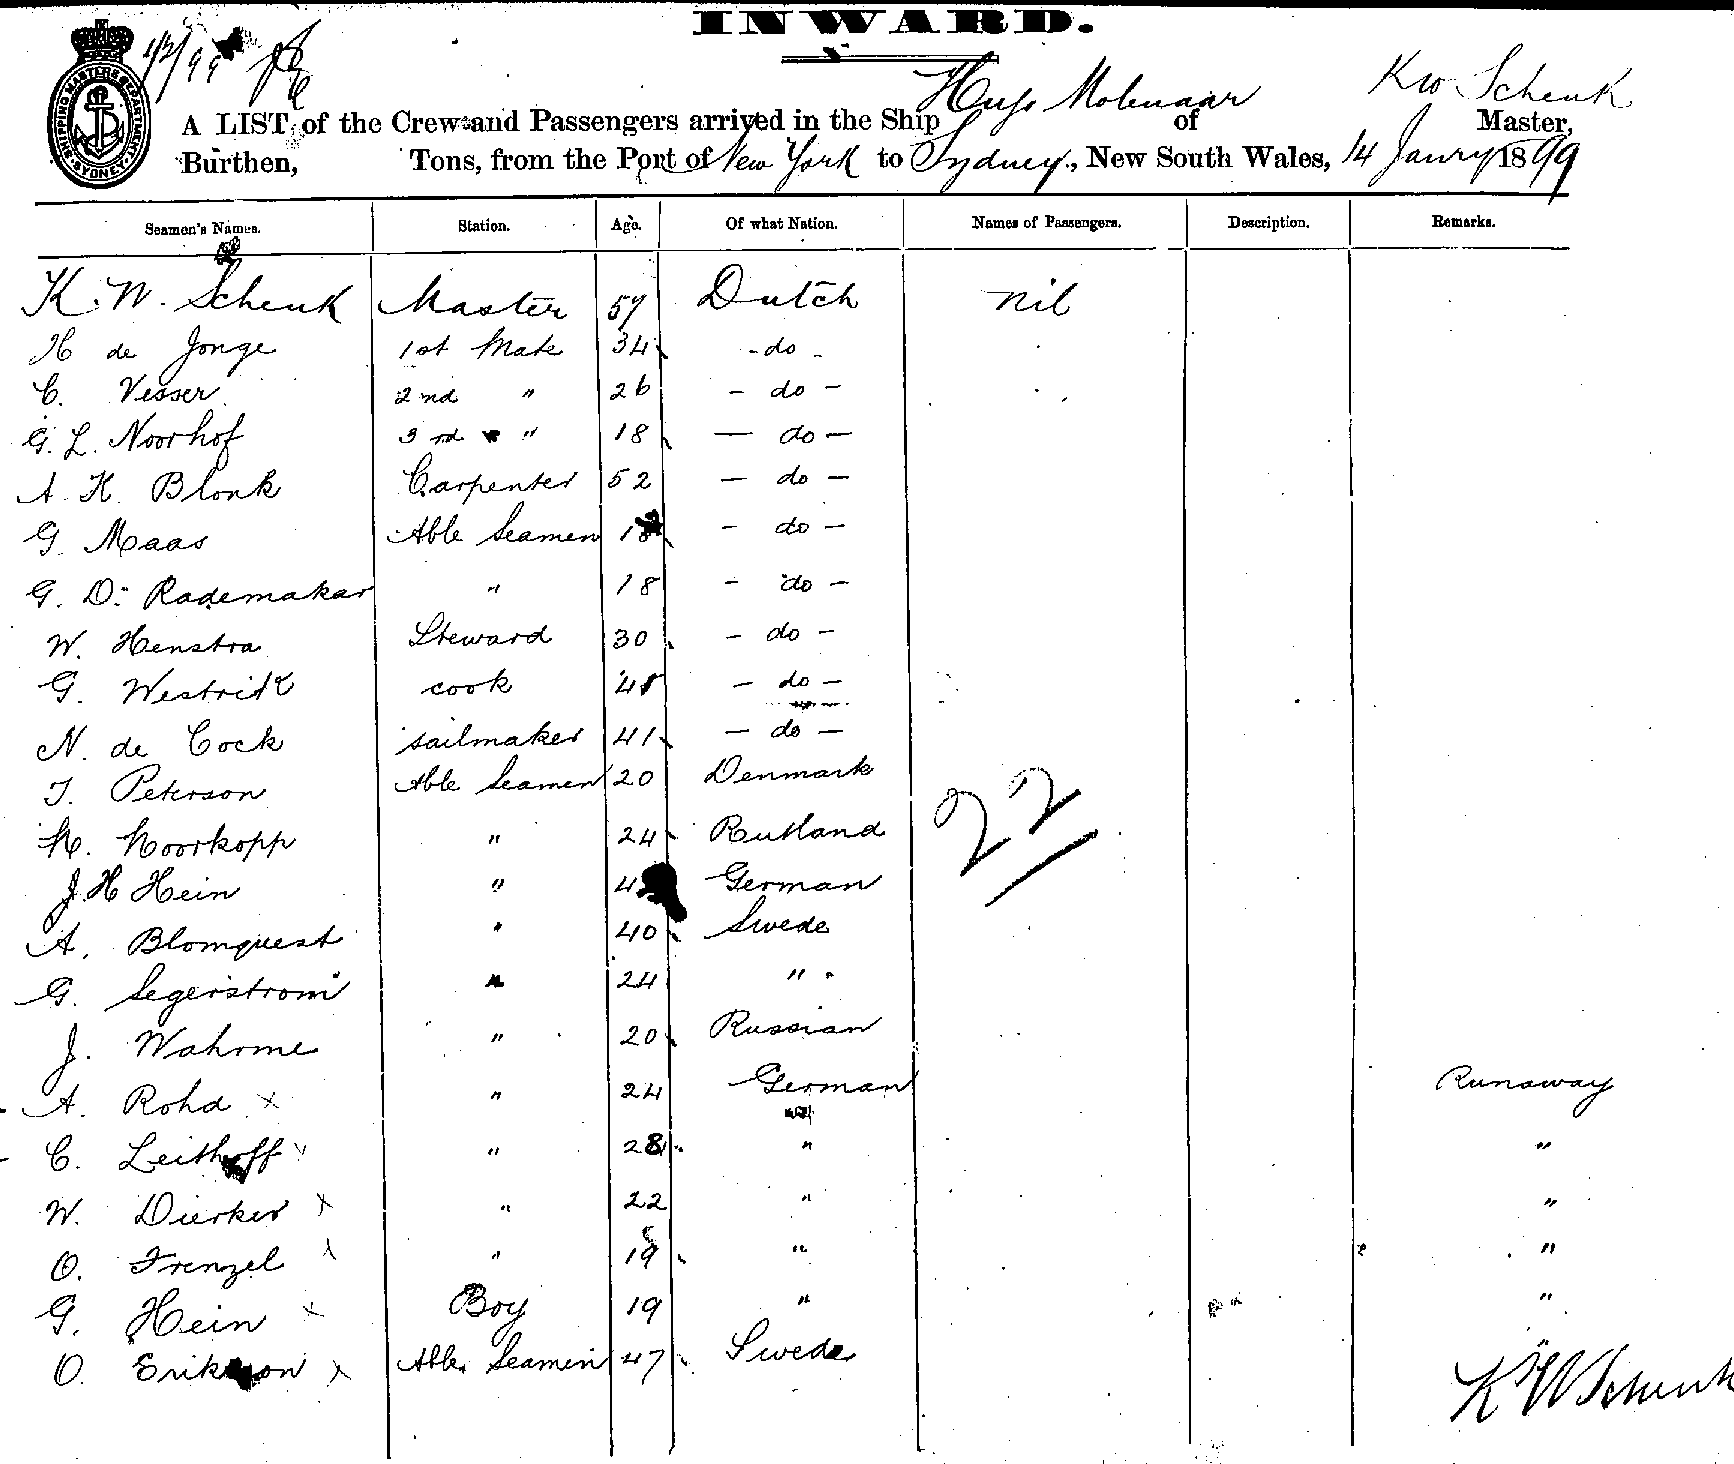 INWARD.
1/2/99
SHIPPING MASTERS DEPARTMENT SYDNEY
Hugo Molenaar KW Schenk
A LIST of the Crew and Passengers arrived in the Ship of Master,
Burthen, Tons, from the Port of New York to Sydney, New South Wales, 14 Janry 1899
Seamen's Names. Station. Age. Of what Nation. Names of Passengers. Description. Remarks.
K. W. Schenk Master 57 Dutch nil
H de Jonge 1st Mate 34 - do -
C. Vesser 2nd " 26 - do -
G. L. Noorhof 3rd " 18 - do -
A. K. Blonk Carpenter 52 - do -
G. Maas Able Seamen 18 - do -
G. D. Rademakar " 18 - do -
W. Henstra Steward 30 - do -
G. Westrik cook - do -
N. de Cock sailmaker 41 - do -
J. Peterson Able Seamen 20 Denmark
22
M. Moorkopp " 24 Rutland
J. H Hein " German
A. Blomquest " 40 Swede
G. Segerstrom " 24 "
J. Wahrme " 20 Russian
A. Rohd x " 24 German Runaway
C. Leithoff x " 28 " "
W. Dierker x " 22 " "
O. Frenzel x " 19 " "
G. Hein x Boy 19 " "
O. Erikson x Able Seamen 47 Swede "
K W Schenk